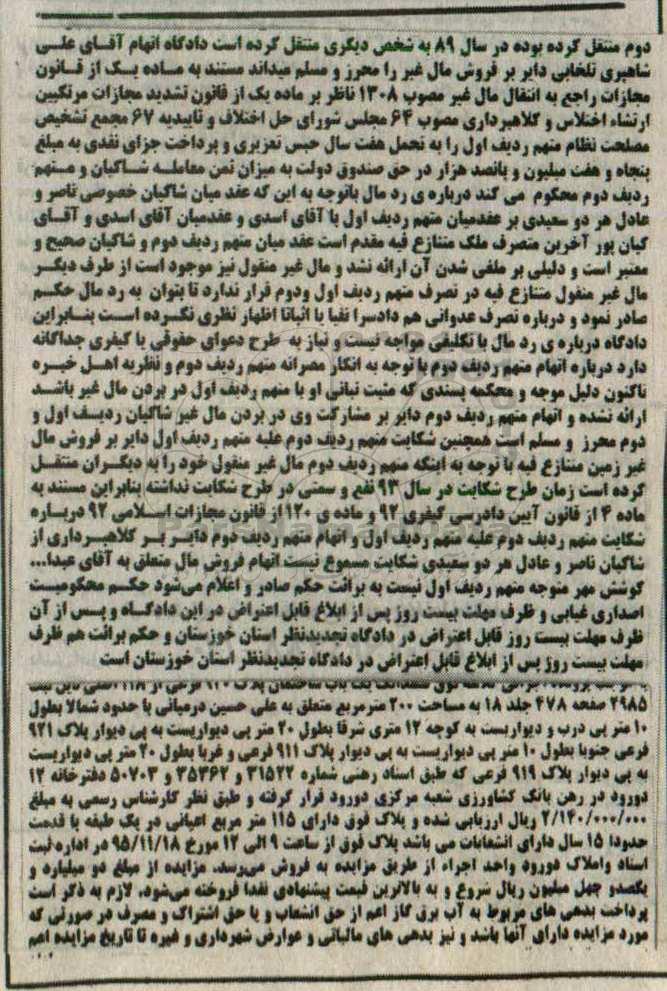 دوم منتقل کرده بوده در سال ۸۹ به شخص دیگری منتقل کرده است دادگاه اتهام آقای علی
شاهپری تلخابی دایر بر فروش مال غیر را محرز و مسلم میداند مستند به ماده یک از قانون
مجازات راجع به انتقال مال غیر مصوب ۱۳۰۸ ناظر بر ماده یک از قانون تشدید مجازات مرتکبین
ارتشاء اختلاس و کلاهبرداری مصوب ۶۴ مجلس شورای حل اختلاف و تاییدیه ۶۷ مجمع تشخیص
مصلحت نظام متهم ردیف اول را به تحمل هفت سال حبس تعزیری و پرداخت جزای نقدی به مبلغ
پنجاه و هفت میلیون و پانصد هزار در حق صندوق دولت به میزان ثمن معامله شاکیان و متهم
ردیف دوم محکوم می کند درباره ی رد مال باتوجه به این که عقد میان شاکیان خصوصی ناصر و
عادل هر دو سعیدی بر عقدمیان متهم ردیف اول با آقای اسدی و عقدمیان آقای اسدی و آقای
کیان پور آخرین متصرف ملک متنازع فیه مقدم است عقد میان متهم ردیف دوم و شاکیان صحیح و
معتبر است و دلیلی بر ملغی شدن آن ارائه نشد و مال غیر منقول نیز موجود است از طرف دیگر
مال غیر منقول متنازع فیه در تصرف متهم ردیف اول ودوم قرار ندارد تا بتوان به رد مال حکم
صادر نمود و درباره تصرف عدوانی هم دادسرا نفیا یا اثباتا اظهار نظری نکرده است بنابراین
دادگاه درباره ی رد مال با تکلیفی مواجه نیست و نیاز به طرح دعوای حقوقی یا کیفری جداگانه
دارد درباره اتهام متهم ردیف دوم با توجه به انکار مصرانه متهم ردیف دوم و نظریه اهل خبره
تاکنون دلیل موجه و محکمه پسندی که مثبت تبانی او با متهم ردیف اول در بردن مال غیر باشد
ارائه نشده و اتهام متهم ردیف دوم دایر بر مشارکت وی در بردن مال غیر شاکیان ردیف اول و
دوم محرز و مسلم است همچنین شکایت متهم ردیف دوم علیه متهم ردیف اول دایر بر فروش مال
غیر زمین متنازع فیه با توجه به اینکه متهم ردیف دوم مال غیر منقول خود را به دیگران منتقل
کرده است زمان طرح شکایت در سال ۹۳ نفع و سمتی در طرح شکایت نداشته بنابراین مستند به
ماده ۴ از قانون آیین دادرسی کیفری ۹۲ و ماده ی ۱۲۰ از قانون مجازات اسلامی ۹۲ درباره
شکایت متهم ردیف دوم علیه متهم ردیف اول و اتهام متهم ردیف دوم دایر بر کلاهبرداری از
شاکیان ناصر و عادل هر دو سعیدی شکایت مسموع نیست اتهام فروش مال متعلق به آقای عبدا...
کوشش مهر متوجه متهم ردیف اول نیست به برائت حکم صادر و اعلام می‌شود حکم محکومیت
اصداری غیابی و ظرف مهلت بیست روز پس از ابلاغ قابل اعتراض در این دادگاه و پس از آن
ظرف مهلت بیست روز قابل اعتراض در دادگاه تجدیدنظر استان خوزستان و حکم برائت هم ظرف
مهلت بیست روز پس از ابلاغ قابل اعتراض در دادگاه تجدیدنظر استان خوزستان است
ششدانگ یک باب ساختمان پلاک ۹۲۰ فرعی از ۱۱۸ اصلی ذیل ثبت
۲۹۸۵ صفحه ۴۷۸ جلد ۱۸ به مساحت ۲۰۰ مترمربع متعلق به علی حسین درمیانی با حدود شمالا بطول
۱۰ متر پی درب و دیواریست به کوچه ۱۲ متری شرقا بطول ۲۰ متر پی دیواریست به پی دیوار پلاک ۹۲۱
فرعی جنوبا بطول ۱۰ متر پی دیواریست به پی دیوار پلاک ۹۱۱ فرعی و غربا بطول ۲۰ متر پی دیواریست
به پی دیوار پلاک ۹۱۹ فرعی که طبق اسناد رهنی شماره ۳۱۵۲۲ و ۳۵۳۶۲ و ۵۰۷۰۳ دفترخانه ۱۲
دورود در رهن بانک کشاورزی شعبه مرکزی دورود قرار گرفته و طبق نظر کارشناس رسمی به مبلغ
۲/۱۴۰/۰۰۰/۰۰۰ ریال ارزیابی شده و پلاک فوق دارای ۱۱۵ متر مربع اعیانی در یک طبقه با قدمت
حدودا ۱۵ سال دارای انشعابات می باشد پلاک فوق از ساعت ۹ الی ۱۲ مورخ ۹۵/۱۱/۱۸ در اداره ثبت
اسناد واملاک دورود واحد اجراء از طریق مزایده به فروش می‌رسد. مزایده از مبلغ دو میلیارد و
یکصدو چهل میلیون ریال شروع و به بالاترین قیمت پیشنهادی نقدا فروخته می‌شود، لازم به ذکر است
پرداخت بدهی های مربوط به آب برق گاز اعم از حق انشعاب و یا حق اشتراک و مصرف در صورتی که
مورد مزایده دارای آنها باشد و نیز بدهی های مالیاتی و عوارض شهرداری و غیره تا تاریخ مزایده اعم